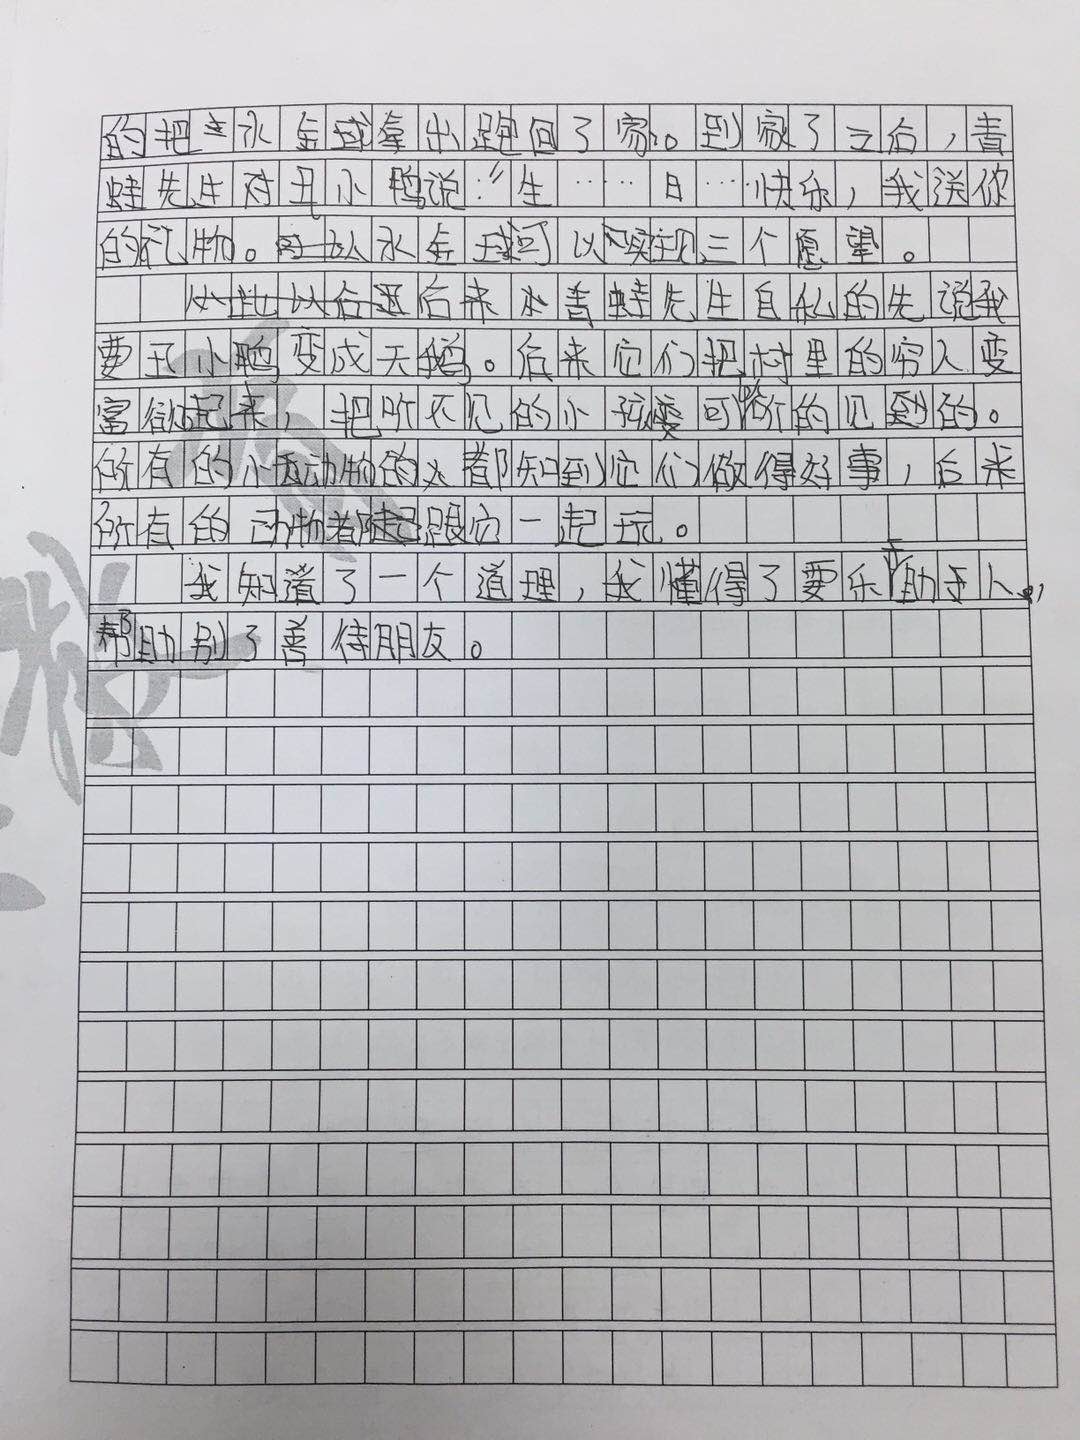 的把水金球拿出跑回了家。到家了之后，青
蛙先生对丑小鸭说："生……日…快乐，我送你
的礼物。水金球可以实现三个愿望。
后来青蛙先生自私的先说我
要丑小鸭变成天鹅。后来它们把村里的穷人变
富裕起来，把听不见的小孩变可听的见到的。
所有的小动物的都知到它们做得好事，后来
所有的动物都跟它一起玩。
我知道了一个道理，我懂得了要乐于助人，
帮助别了善待朋友。